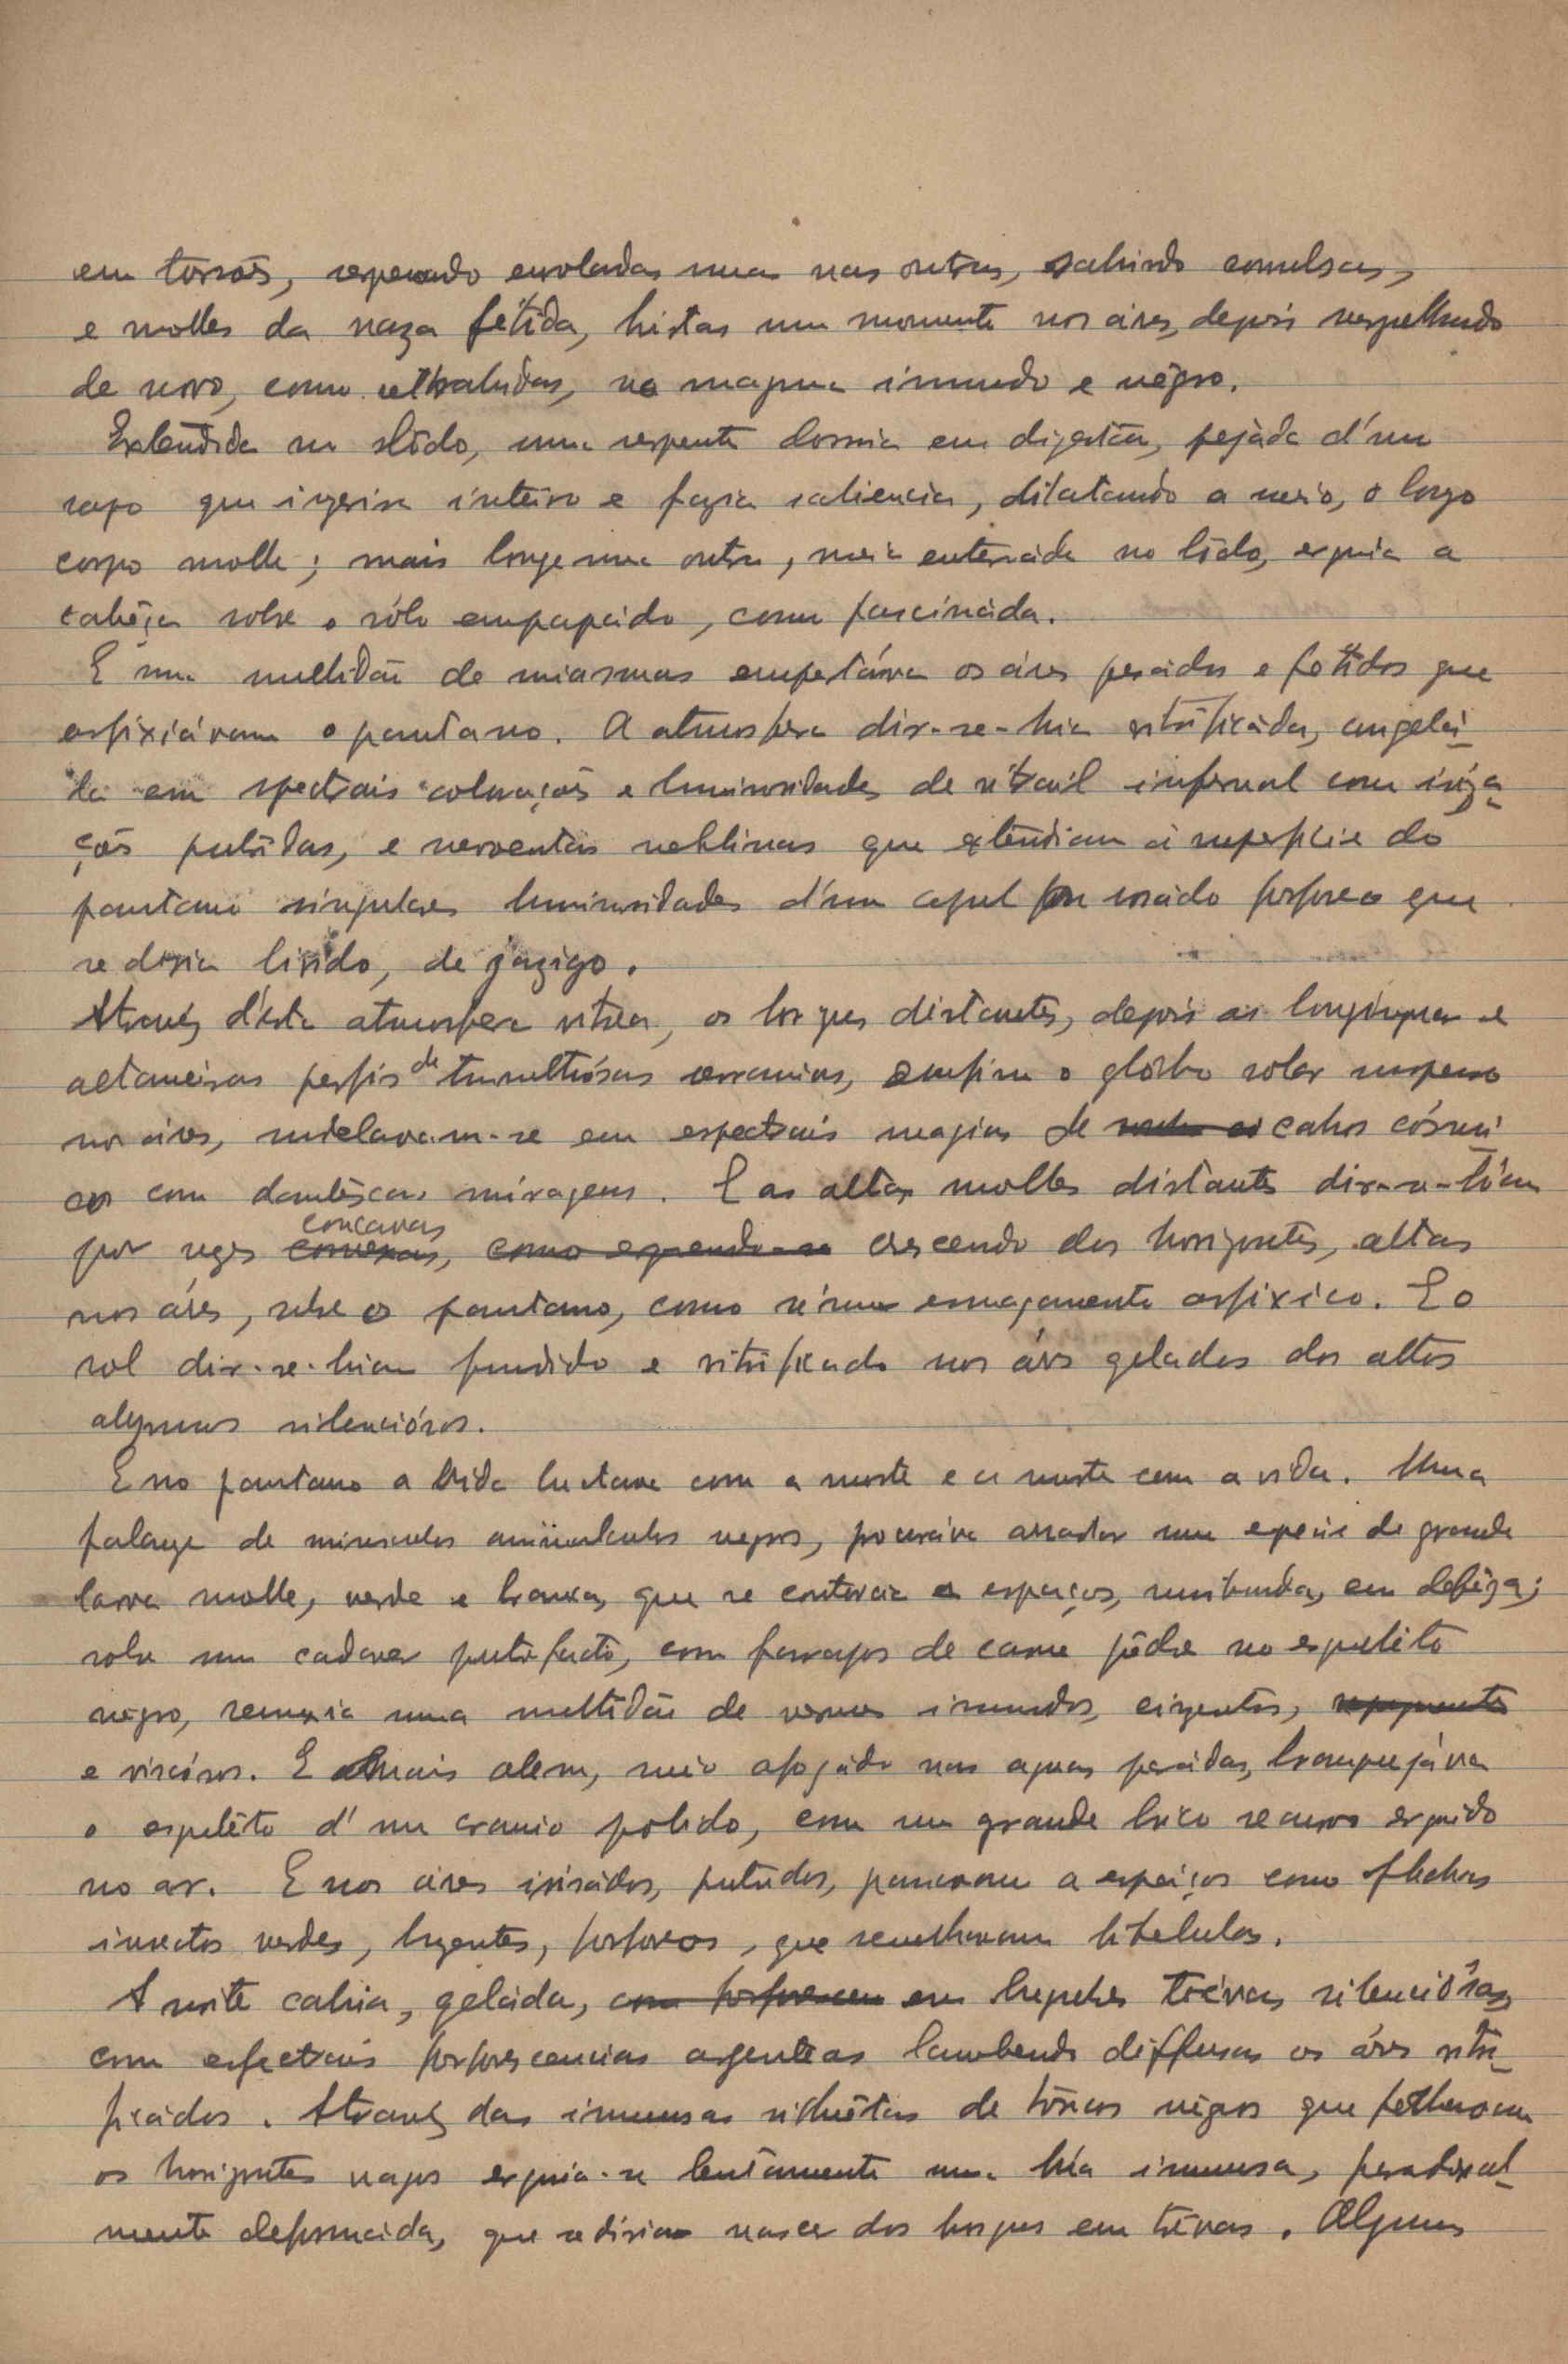 em torsões, serpeando enroladas umas nas outras, sahindo convulsas,
e molles da vaza fétida, hirtas um momento nos áres, depois mergulhando
de novo, como attrahidas, no magma immundo e nêgro.
Extendida no lôdo, uma serpente dormia em digestão, pejáda d'um
sapo que ingerira inteiro e fazia saliencia, dilatando a meio, o longo
corpo molle; mais longe uma outra, meia enterráda no lôdo, erguia a
cabêça sobre o sólo empapádo, como fascináda.
E uma multidão de miasmas empestáva os áres pesádos e fetidos que
asfixiávam o pantano. A atmosfera dir-se-hia vitrificáda, congelá-
da em spectrais colorações e luminosidades de vitrail infernal com irisa-
ções putridas, e nevoentas neblinas que extendiam á superficie do
pantano singulares luminosidades d'um azul irisádo fosforeo que
se diria livido, de jazigo.
Atravez d'esta atmosfera vitrea, os longes distantes, depois as longinquas e
altaneiras perfis de tumultuósas serranias, emfim o glôbo solar suspenso
nos áres, modelavam-se em espectrais magias de cahos cósmi-
cos com dantêscas miragens. E as altas molles distantes dir-se-hiam
por vezes concavas, crescendo dos horizontes, altas
nos áres, sobre o pantano, como n'um esmagamento asfixico. E o
sol dir-se-hia fundido e vitrificado nos áres gelados dos altos
abysmos silenciósos.
E no pantano a vida luctava com a morte e a morte com a vida. Uma
falange de minusculos animalculos negros, procuráva arrastar uma especie de grande
larva molle, verde e branca, que se contorcia a espaços, moribunda, em defêza;
sobre um cadaver putrefacto, com farrapos de carne pôdre no esqueleto
negro, remexia uma multidão de vermes immundos, cinzentos,
e viscósos. E mais alem, meio afogádo nas aguas paradas, branquejáva
o esquelêto d'um craneo polido, com um grande bico recurvo erguido
no ar. E nos áres irisádos, putridos, passavam a espáços como flechas
insectos verdes, luzentes, fosforeos, que semelhavam libelulas.
A noite cahia, geláda, em lugubres trévas silenciósas,
com espectrais fosforescencias argenteas lambendo diffusas os áres vitri-
ficádos. Atravez das immensas silhuêtas de tôrsos nêgros que fechavam
os horizontes vagos erguia-se lentamente uma lúa immensa, paradoxal-
mente deformada, que se diria nascer dos bosques em trévas. Alguns